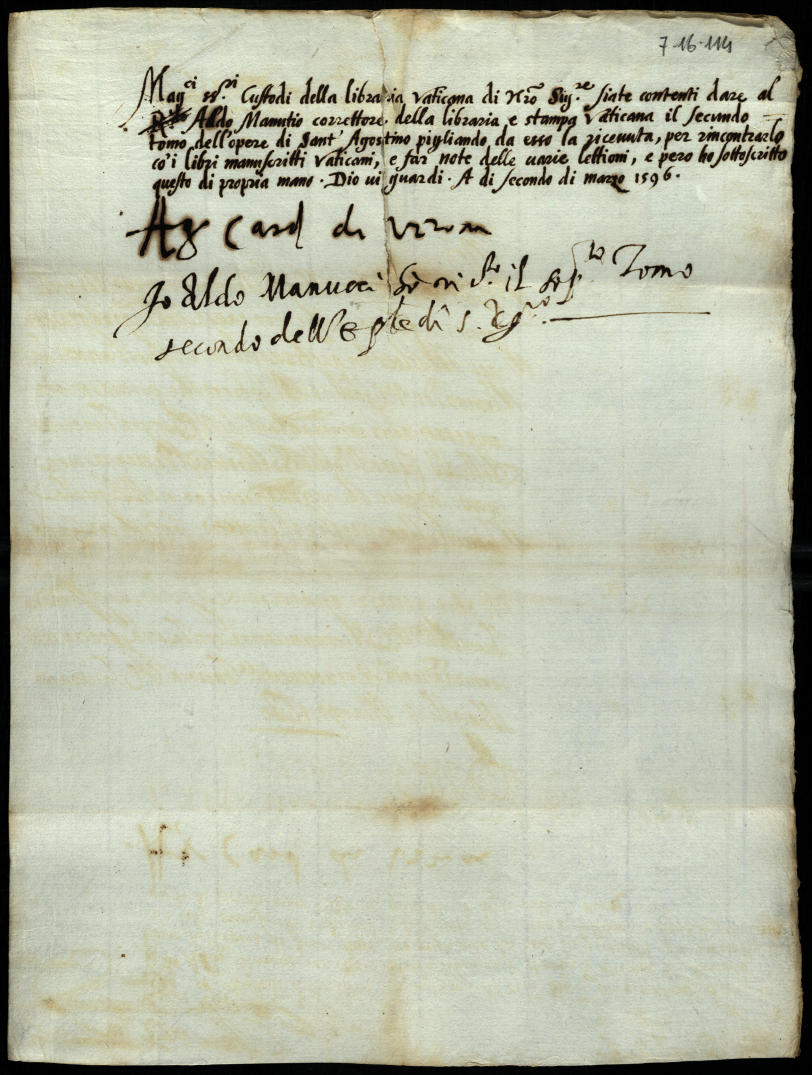 7-16-114
Mag.ci ss.ri Custodi della libraria Vaticana di Nrõ Sig.re siate contenti dare al
Aldo Manutio correttore della libraria, e stampa Vaticana il secundo
tomo dell'opere di Sant' Agostino pigliando da esso la ricevuta, per rincontrarlo
co'i libri manuscritti Vaticani, e far note delle uarie lettioni, e pero ho sottoscritto
questo di propria mano. Dio ui guardi. A di secondo di marzo 1596.
Ag Card di Verona
Io Aldo Manucci il Tomo
secondo dell' di S. Ag.no